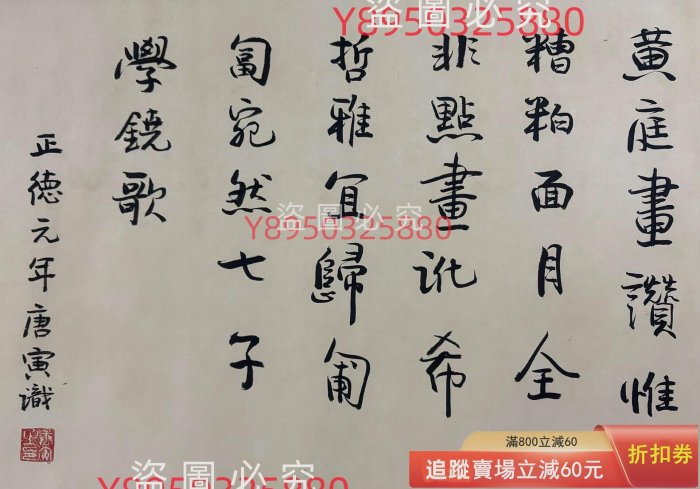 黄庭畫讚惟
糟粕面目全
非點畫訛希
哲雅宜歸匍
匐宛然七子
學鐃歌
正德元年唐寅識
盜圖必究
Y8950325880
盜圖必究
Y8950325880
盜圖必究
Y8950325880
滿800立減60
追蹤賣場立減60元
折扣券